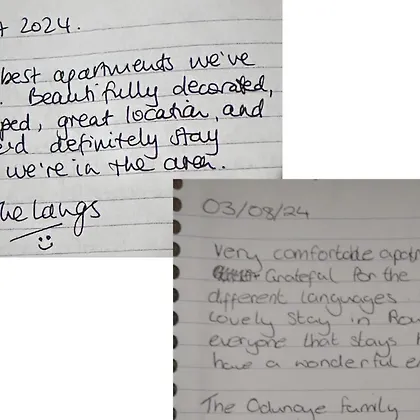 2024.
best apartments we've
Beautifully decorated,
ped, great location, and
definitely stay
we're in the area.
he Langs
03/08/24
Very comfortable apart
Grateful for the
different languages
Lovely stay in Ro
everyone that stays
have a wonderful e
The Odunaye family